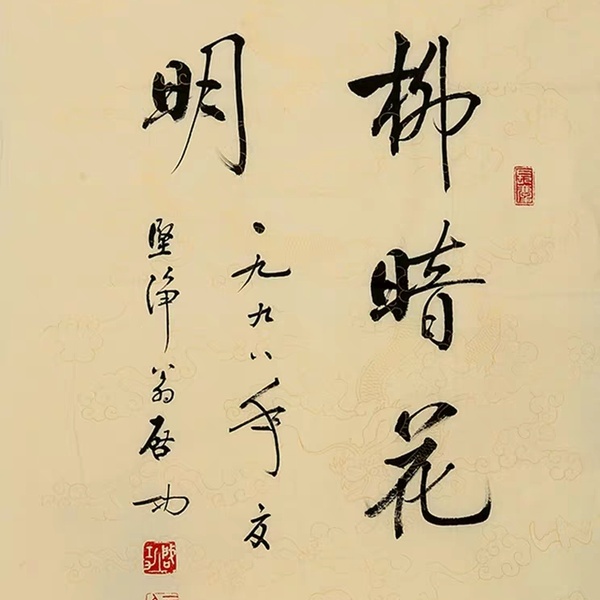 柳暗花
明
一九九八年夏
坚净翁启功
启功